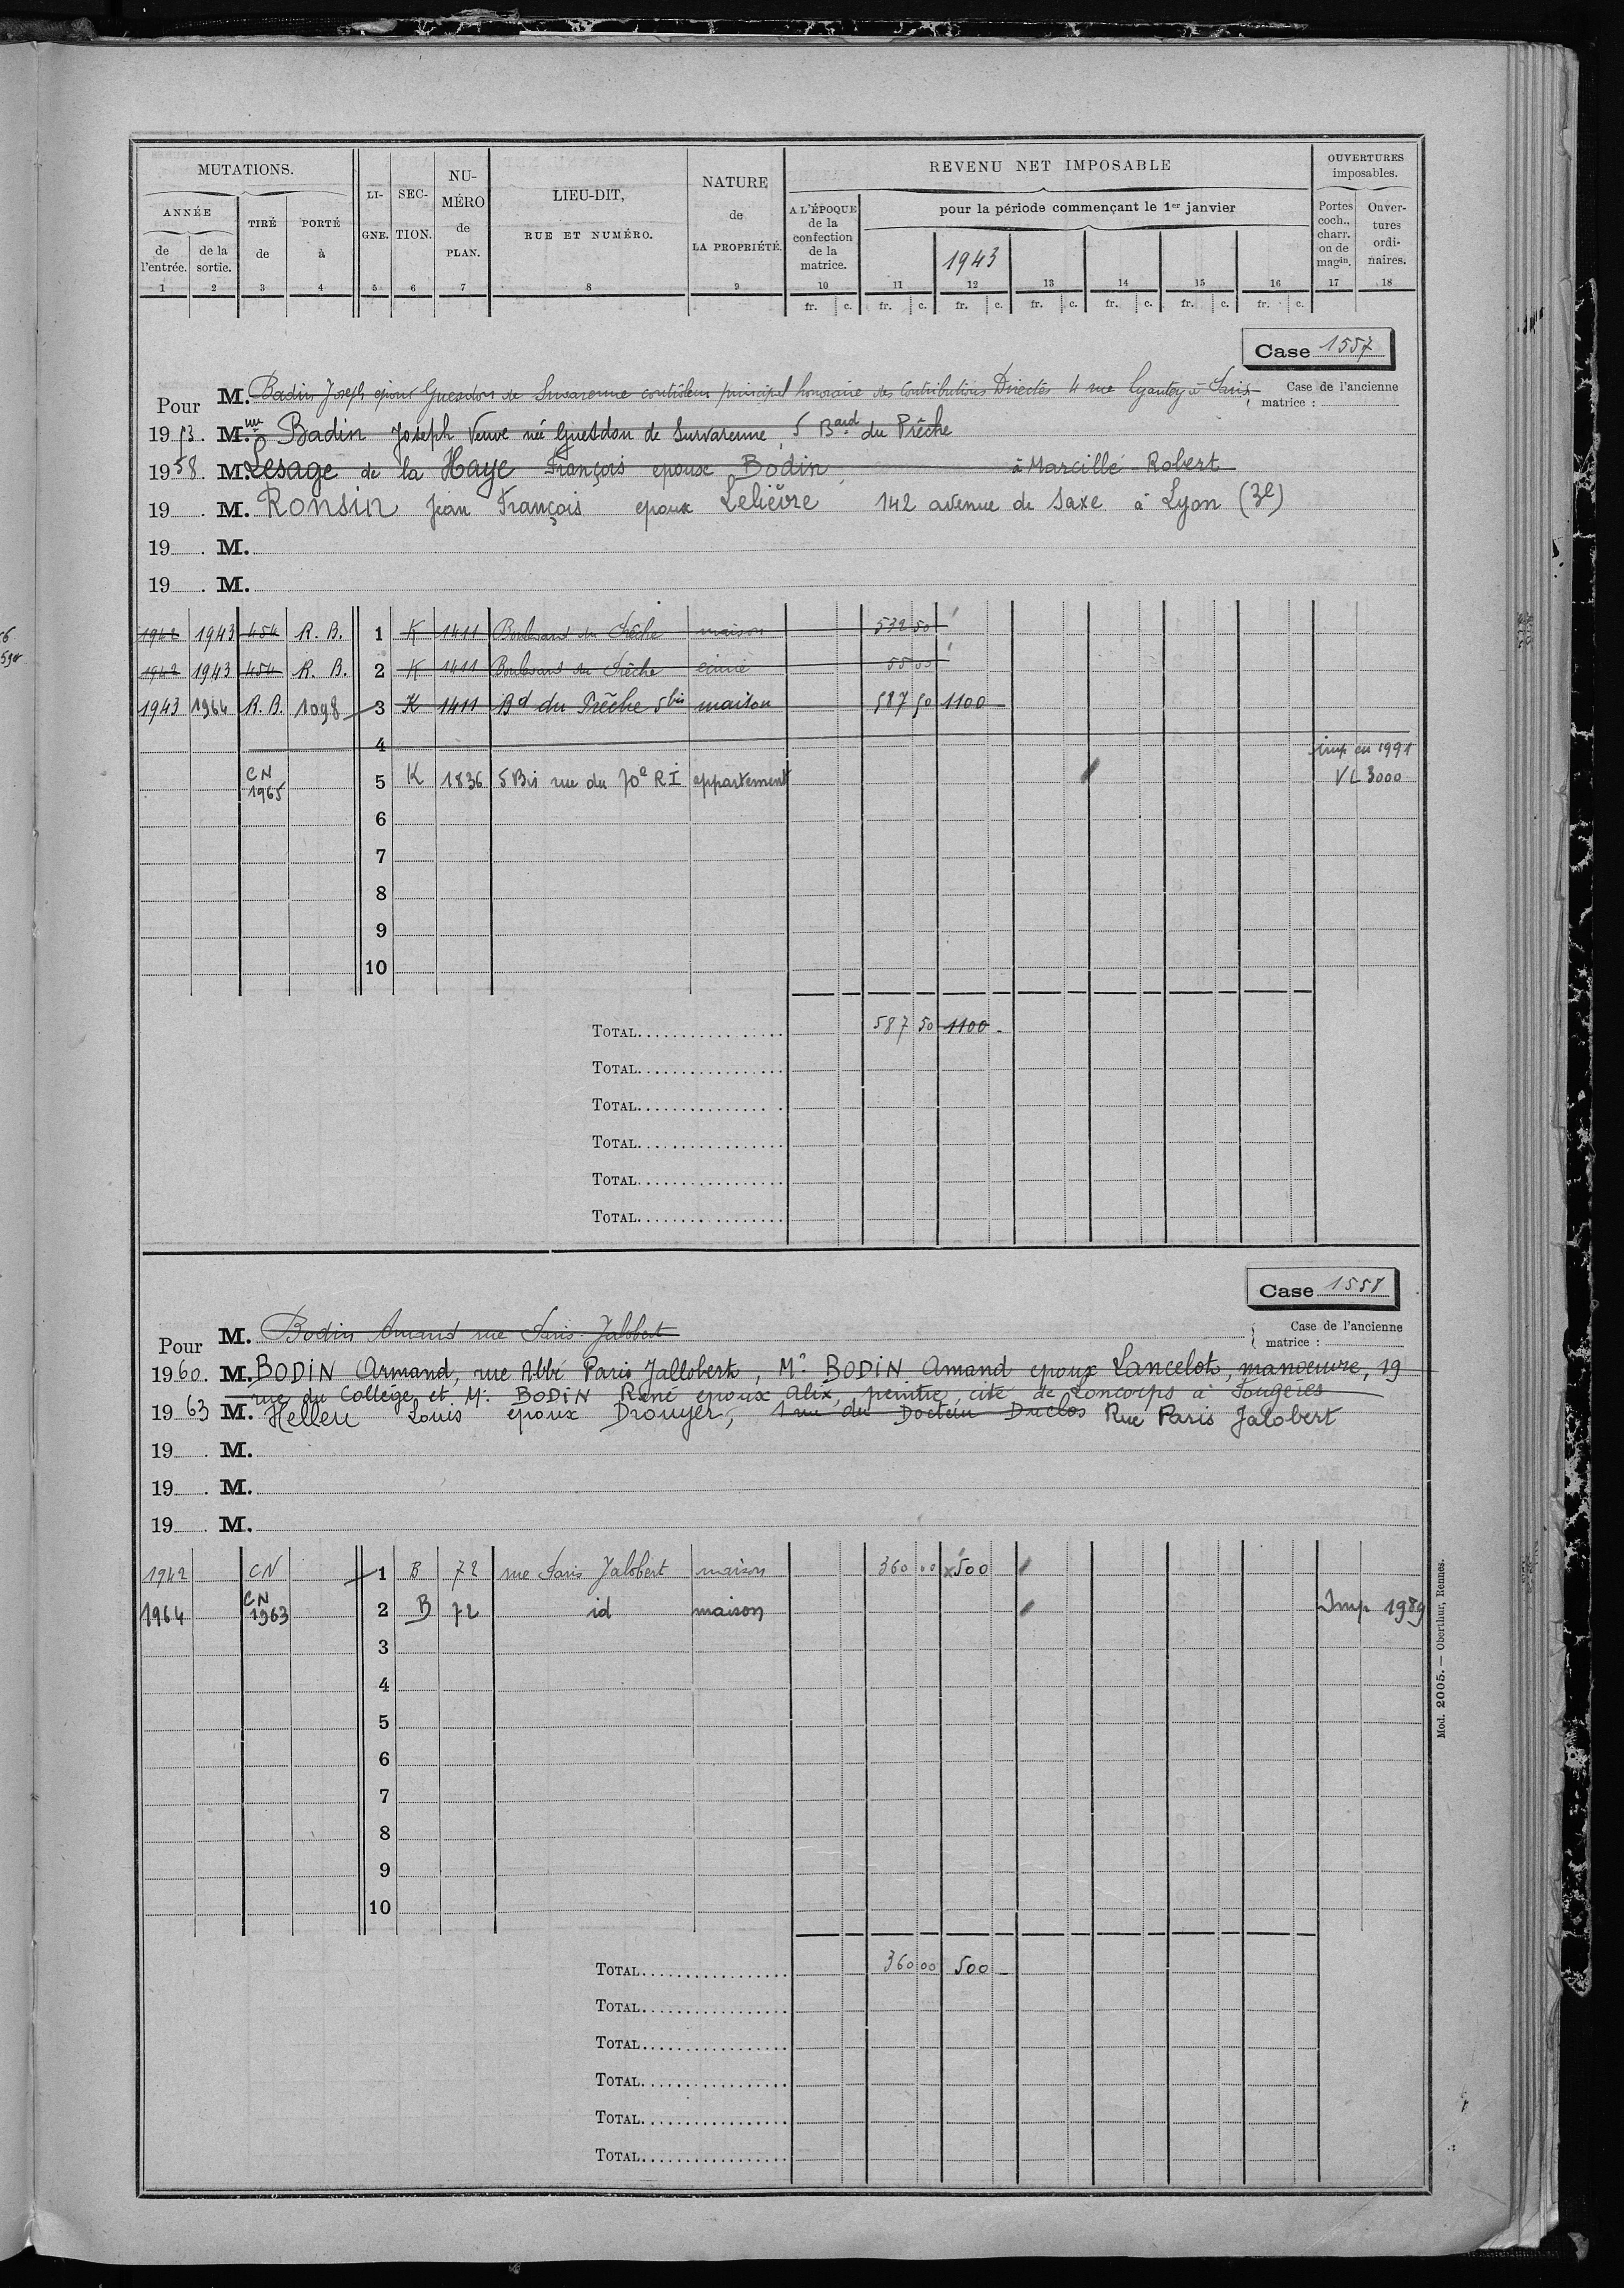 MUTATIONS. LI- SEC- NU- LIEU-DIT, NATURE REVENU NET IMPOSABLE OUVERTURES
imposables.
ANNÉE TIRÉ PORTÉ GNE. TION. MÉRO RUE ET NUMÉRO. de A L'ÉPOQUE pour la période commençant le 1er janvier Portes Ouver-
de de la de à de LA PROPRIÉTÉ. de la coch., tures
l'entrée. sortie. PLAN. confection 1943 charr. ordi-
de la ou de naires.
matrice. magin.
1 2 3 4 5 6 7 8 9 10 11 12 13 14 15 16 17 18
fr. c. fr. c. fr. c. fr. c. fr. c. fr. c. fr. c.
Case 1557
Pour M. Badin Joseph époux Guesdon de contrôleur principal honoraire des Contributions Directes 4 rue Lyautey à Paris Case de l'ancienne
matrice :
1953. Mme Badin Joseph Veuve née Guesdon de Survarenne, 5 Bard du Prêche
1958. M. Lesage de la Haye François epoux Bodin, à Marcillé-Robert
19 . M. Ronsin Jean François epoux Lelièvre 142 avenue de Saxe à Lyon (3e)
19 . M.
19 . M.
1942 1943 454 R. B. 1 K 1411 Boulevard du Prêche maison 532 50
1942 1943 454 R. B. 2 K 1411 Boulevard du Prêche 55 00
1943 1964 R. B. 1098 3 K 1411 Bd du Prêche 5bis maison 587 50 1100
4 imp en 1991
CN 1965 5 K 1836 5 Bis rue du 70e RI appartement VL 3000
6
7
8
9
10
TOTAL 587 50 1100
TOTAL
TOTAL
TOTAL
TOTAL
TOTAL
Case 1558
Pour M. Bodin Amand rue Paris-Jalobert Case de l'ancienne
matrice :
1960. M. BODIN Armand, rue Abbé Paris Jallobert, Mr BODIN Amand epoux Lancelot, manoeuvre, 19
rue du Collège, et Mr BODIN René epoux Alix, peintre, cité de à Fougères
1963 M. Helleu Louis epoux Drouyer, 1 rue du Docteur Duclos Rue Paris Jalobert
19 . M.
19 . M.
19 . M.
1942 CN 1 B 72 rue Paris Jalobert maison 360 00 x500
1964 CN 1963 2 B 72 id maison Imp 1989
3
4
5
6
7
8
9
10
TOTAL 360 00 500
TOTAL
TOTAL
TOTAL
TOTAL
TOTAL
Mod. 2005. — Oberthur, Rennes.